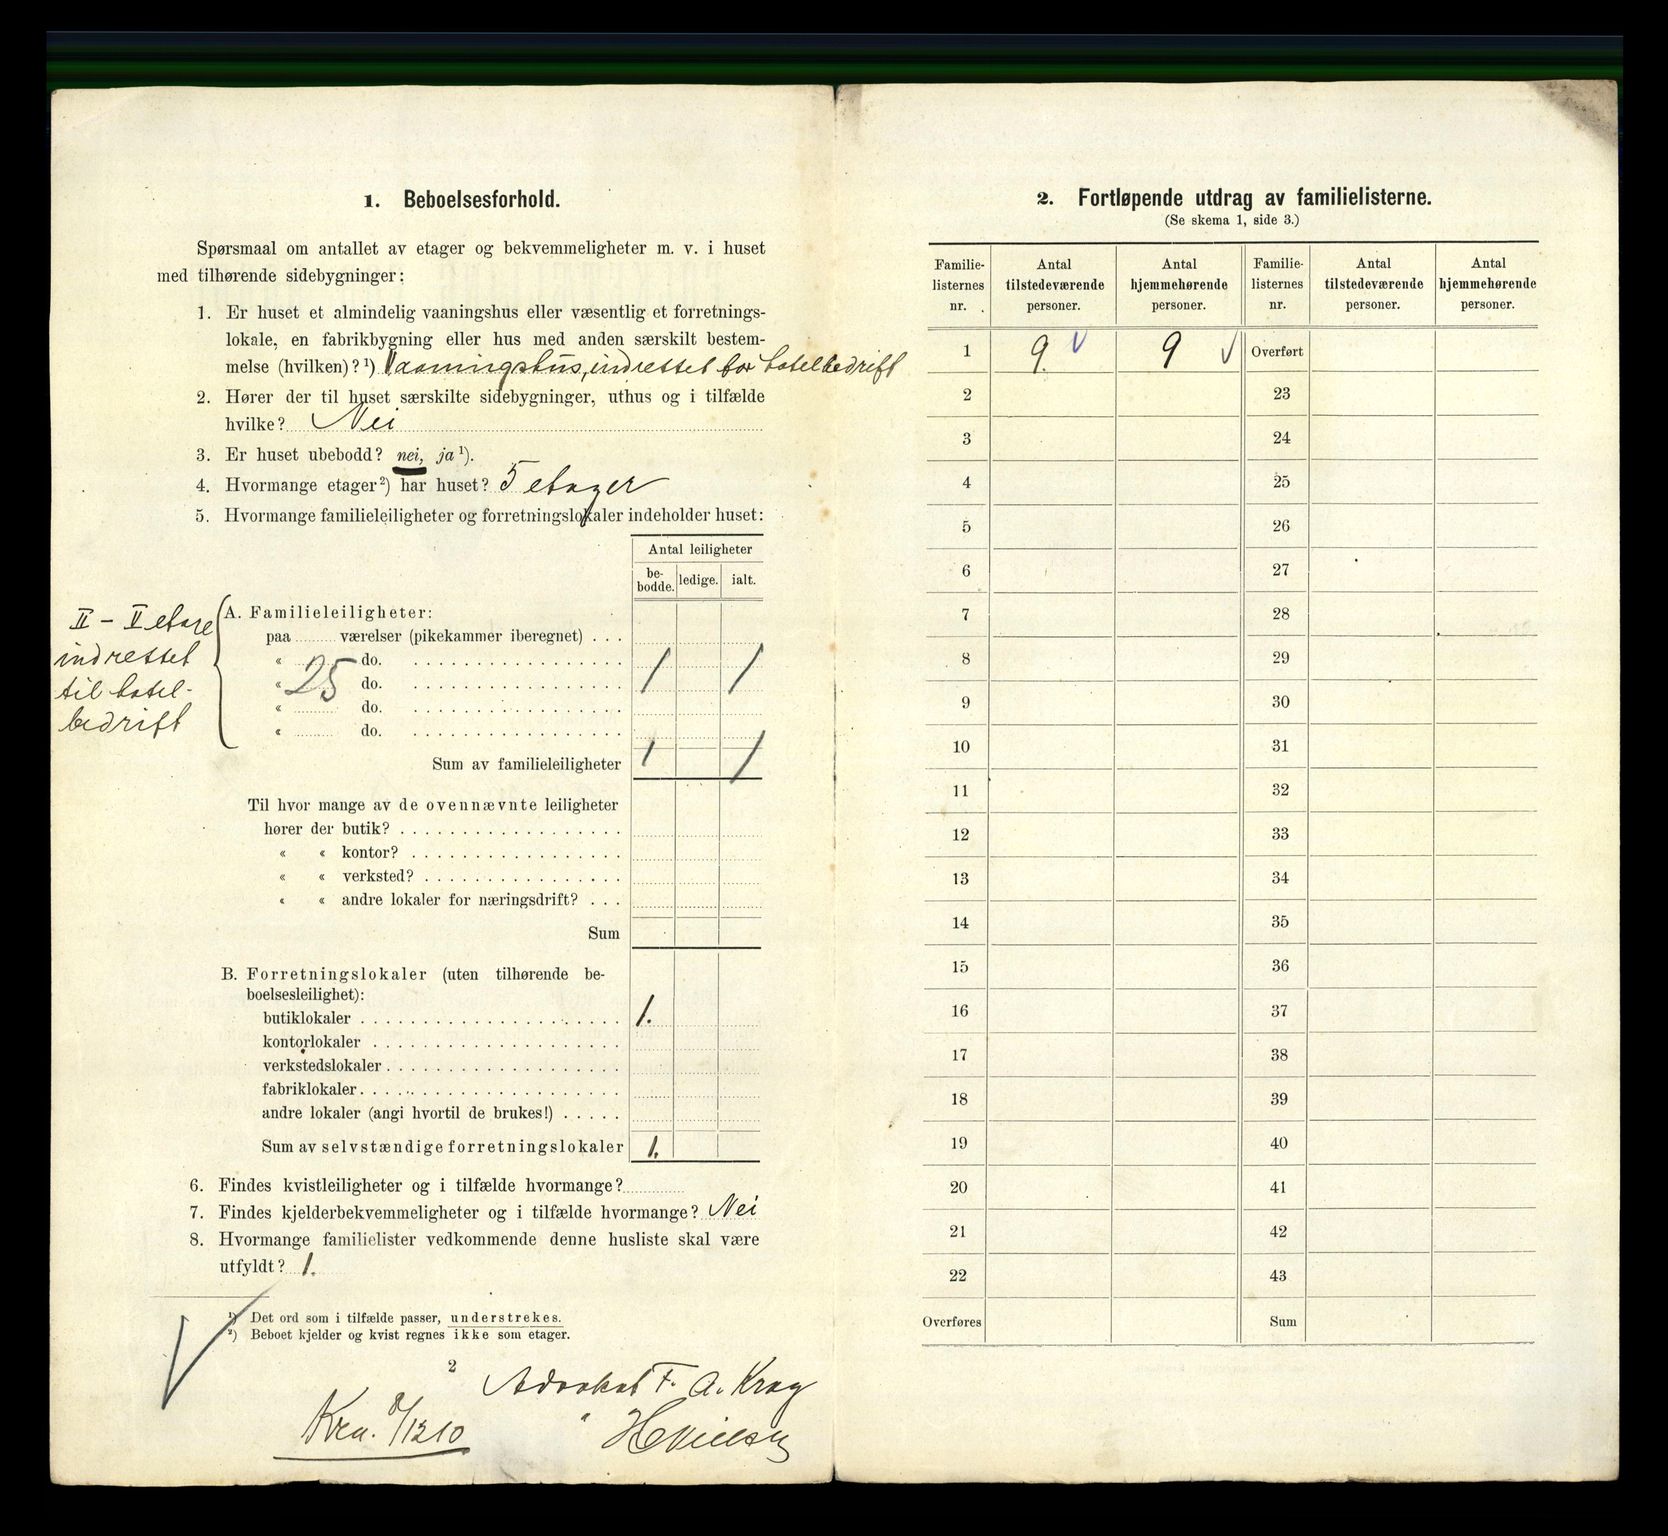 1. Beboelsesforhold.
Spørsmaal om antallet av etager og bekvemmeligheter m. v. i huset
med tilhørende sidebygninger:
1. Er huset et almindelig vaaningshus eller væsentlig et forretnings-
lokale, en fabrikbygning eller hus med anden særskilt bestem-
melse (hvilken)?¹) Vaaningshus, indrettet for hotelbedrift
2. Hører der til huset særskilte sidebygninger, uthus og i tilfælde
hvilke? Nei
3. Er huset ubebodd? nei, ja ¹).
4. Hvormange etager²) har huset? 5 etager
5. Hvormange familieleiligheter og forretningslokaler indeholder huset:
Antal leiligheter
be-bodde. ledige. ialt.
II – V etage
indrettet
til hotel-
bedrift
A. Familieleiligheter:
paa værelser (pikekammer iberegnet) . . .
« do.
« 25 do. 1 1
« do.
« do.
Sum av familieleiligheter 1 1
Til hvor mange av de ovennævnte leiligheter
hører der butik?
« « kontor?
« « verksted?
« « andre lokaler for næringsdrift? . . .
Sum
B. Forretningslokaler (uten tilhørende be-
boelsesleilighet):
butiklokaler 1.
kontorlokaler
verkstedslokaler
fabriklokaler
andre lokaler (angi hvortil de brukes!)
Sum av selvstændige forretningslokaler 1.
6. Findes kvistleiligheter og i tilfælde hvormange?
7. Findes kjelderbekvemmeligheter og i tilfælde hvormange? Nei
8. Hvormange familielister vedkommende denne husliste skal være
utfyldt? 1.
¹) Det ord som i tilfælde passer, understrekes.
²) Beboet kjelder og kvist regnes ikke som etager.
2
Advokat F. A. Krag
Kra. 8/12 10
2. Fortløpende utdrag av familielisterne.
(Se skema 1, side 3.)
Familie-listernes nr. Antal tilstedeværende personer. Antal hjemmehørende personer. Familie-listernes nr. Antal tilstedeværende personer. Antal hjemmehørende personer.
1 9. 9 Overført
2 23
3 24
4 25
5 26
6 27
7 28
8 29
9 30
10 31
11 32
12 33
13 34
14 35
15 36
16 37
17 38
18 39
19 40
20 41
21 42
22 43
Overføres Sum